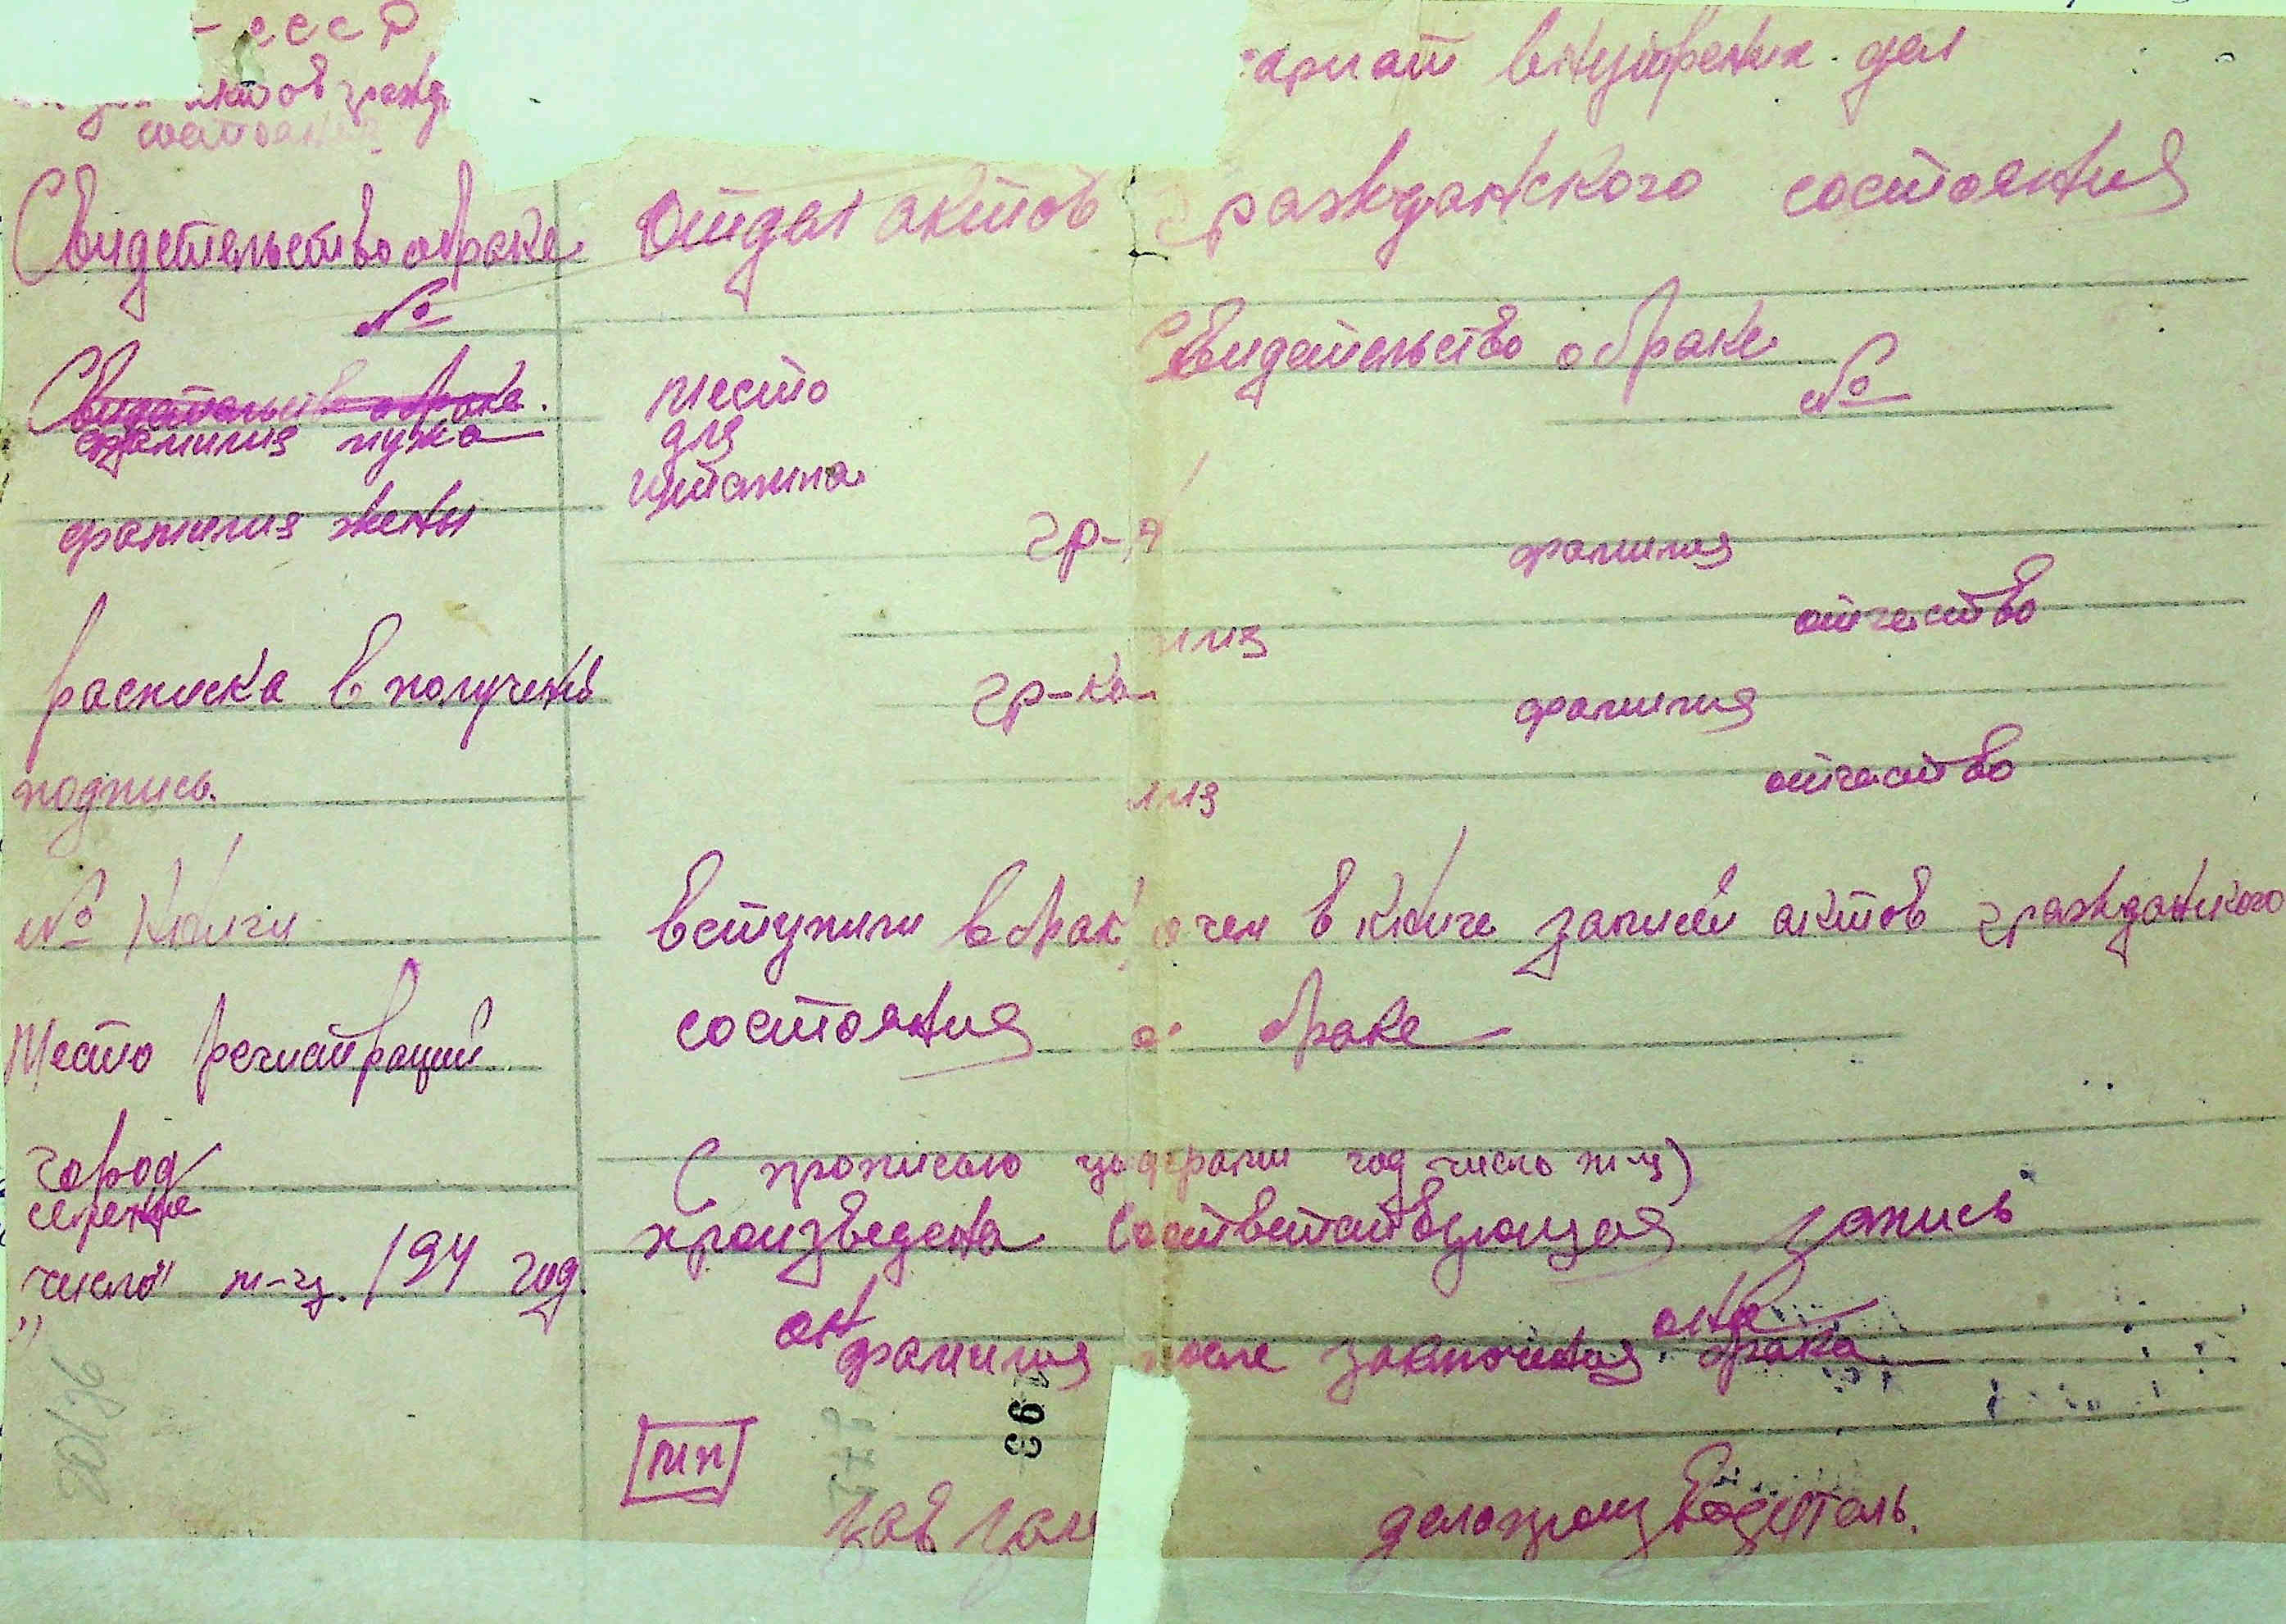 - СССР
актов гражд.
состояния
Свидетельство о браке
№
Свидетельств о браке.
фамилия мужа
фамилия жены
расписка в получени
подпись
№ книги
Место регистрации
город
селение
"число" м-ц. 194 год.
ариат внутренних дел
Отдел актов гражданского состояния
Свидетельство о браке
№
место
для
штампа
гр-н
фамилия
имя
отчество
гр-ка
фамилия
имя
отчество
вступили в брак о чем в книге записей актов гражданского
состояния о браке
(прописью цифрами год число м-ц)
произведена соответствующая запись
он
она
фамилия после заключения брака
МП
93
зав загс
делопроизводитель.